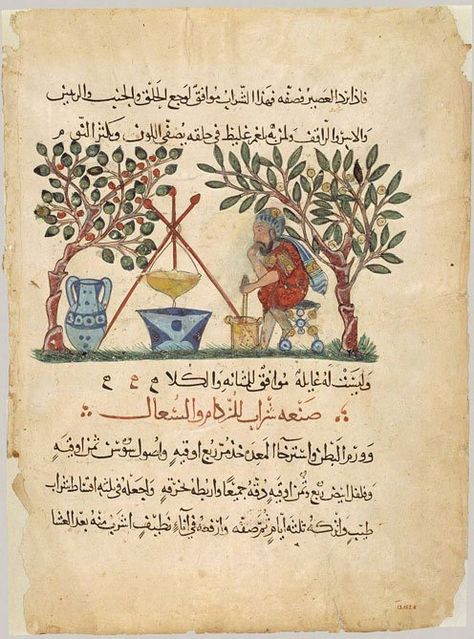 فاذا برد العصير فصفه فهذا الشراب موافق لوجع الحلق والجنب والريتين
ولمن به بلغم غليظ في حلقه يصفي اللون ويكثر النوم
وليست له غايله موافق للمثانه والكلا
صنعه شراب للزكام والسعال
وورم البطن واسترخا المعده خذ مر ربع اوقيه واصول سوسن ثمن اوقيه
وفلفل ابيض ربع وثمن اوقيه دقه جميعا واربطه بخرقه واجعله في اقساط شراب
طيب واتركه ثلثه ايام ثم صفه وارفعه في اناء نظيف اشرب منه بعد العشا
13.152.6